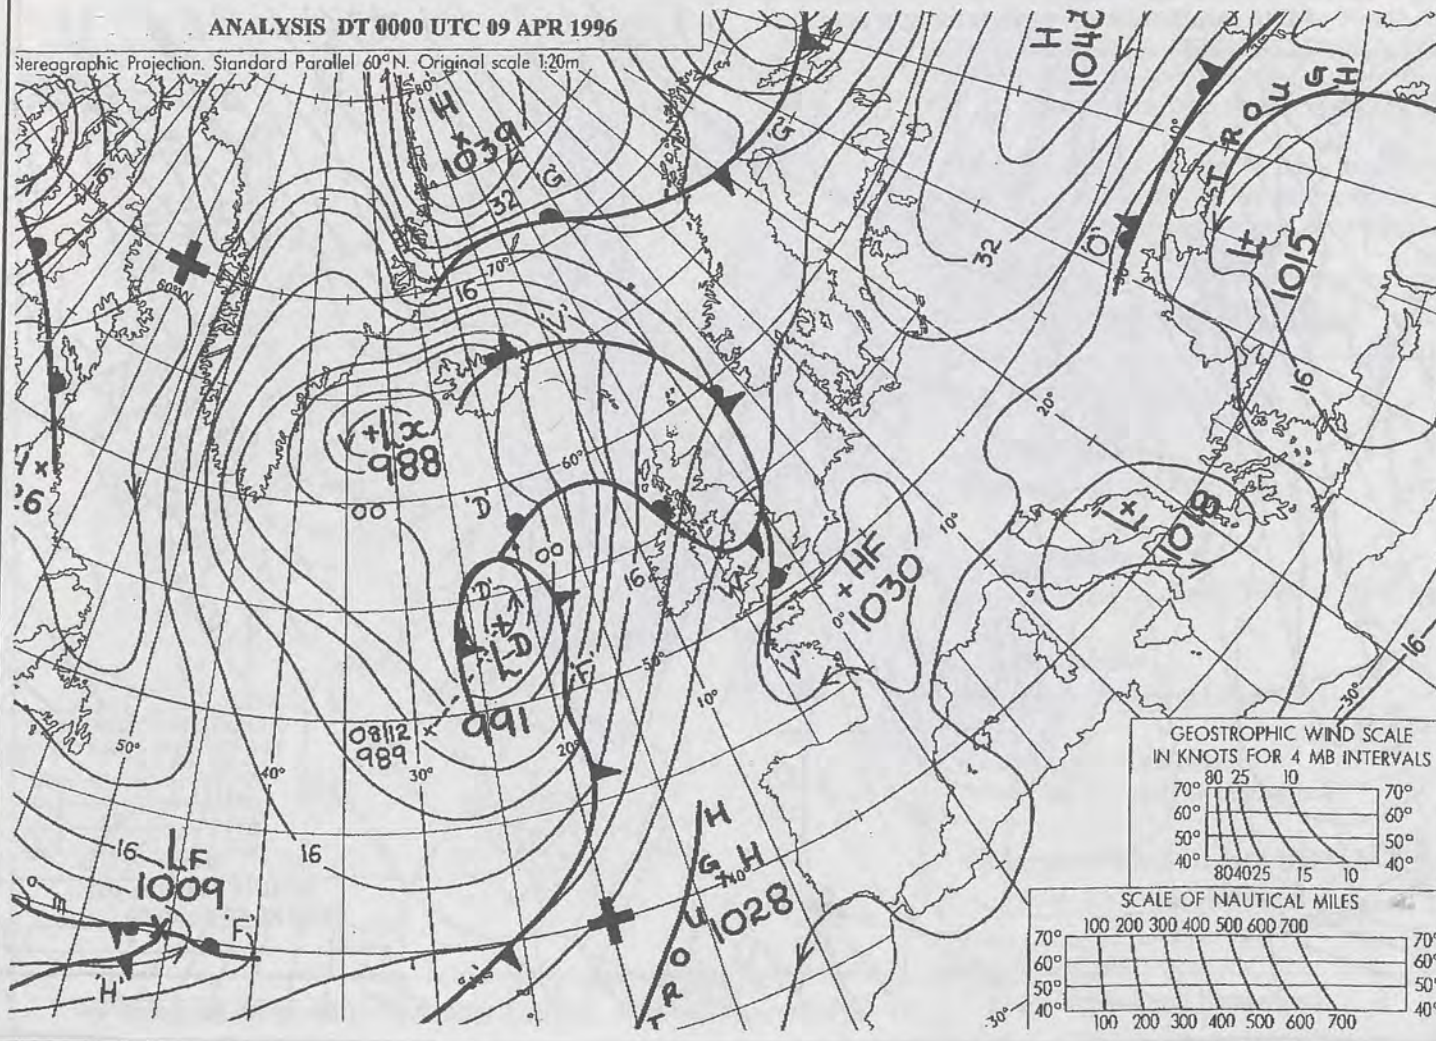 ANALYSIS DT 0000 UTC 09 APR 1996
Stereographic Projection. Standard Parallel 60°N. Original scale 1:20m
H
1040
80°
H
1039
G
G
32
TROUGH
L
1015
32
'O'
16
70°
60°N
16
20°
L
988
00
'D'
60°
00
16
10°
L
1018
HF
1030
0°
'D'
L D
991
'F'
50°
10°
08/12
989
20°
30°
40°
50°
16
30°
16
LF
1009
16
'F'
'H'
H
1028
40°
TROUGH
GEOSTROPHIC WIND SCALE
IN KNOTS FOR 4 MB INTERVALS
80 25 10
70° 70°
60° 60°
50° 50°
40° 40°
80 40 25 15 10
SCALE OF NAUTICAL MILES
100 200 300 400 500 600 700
70° 70°
60° 60°
50° 50°
40° 40°
100 200 300 400 500 600 700
30°